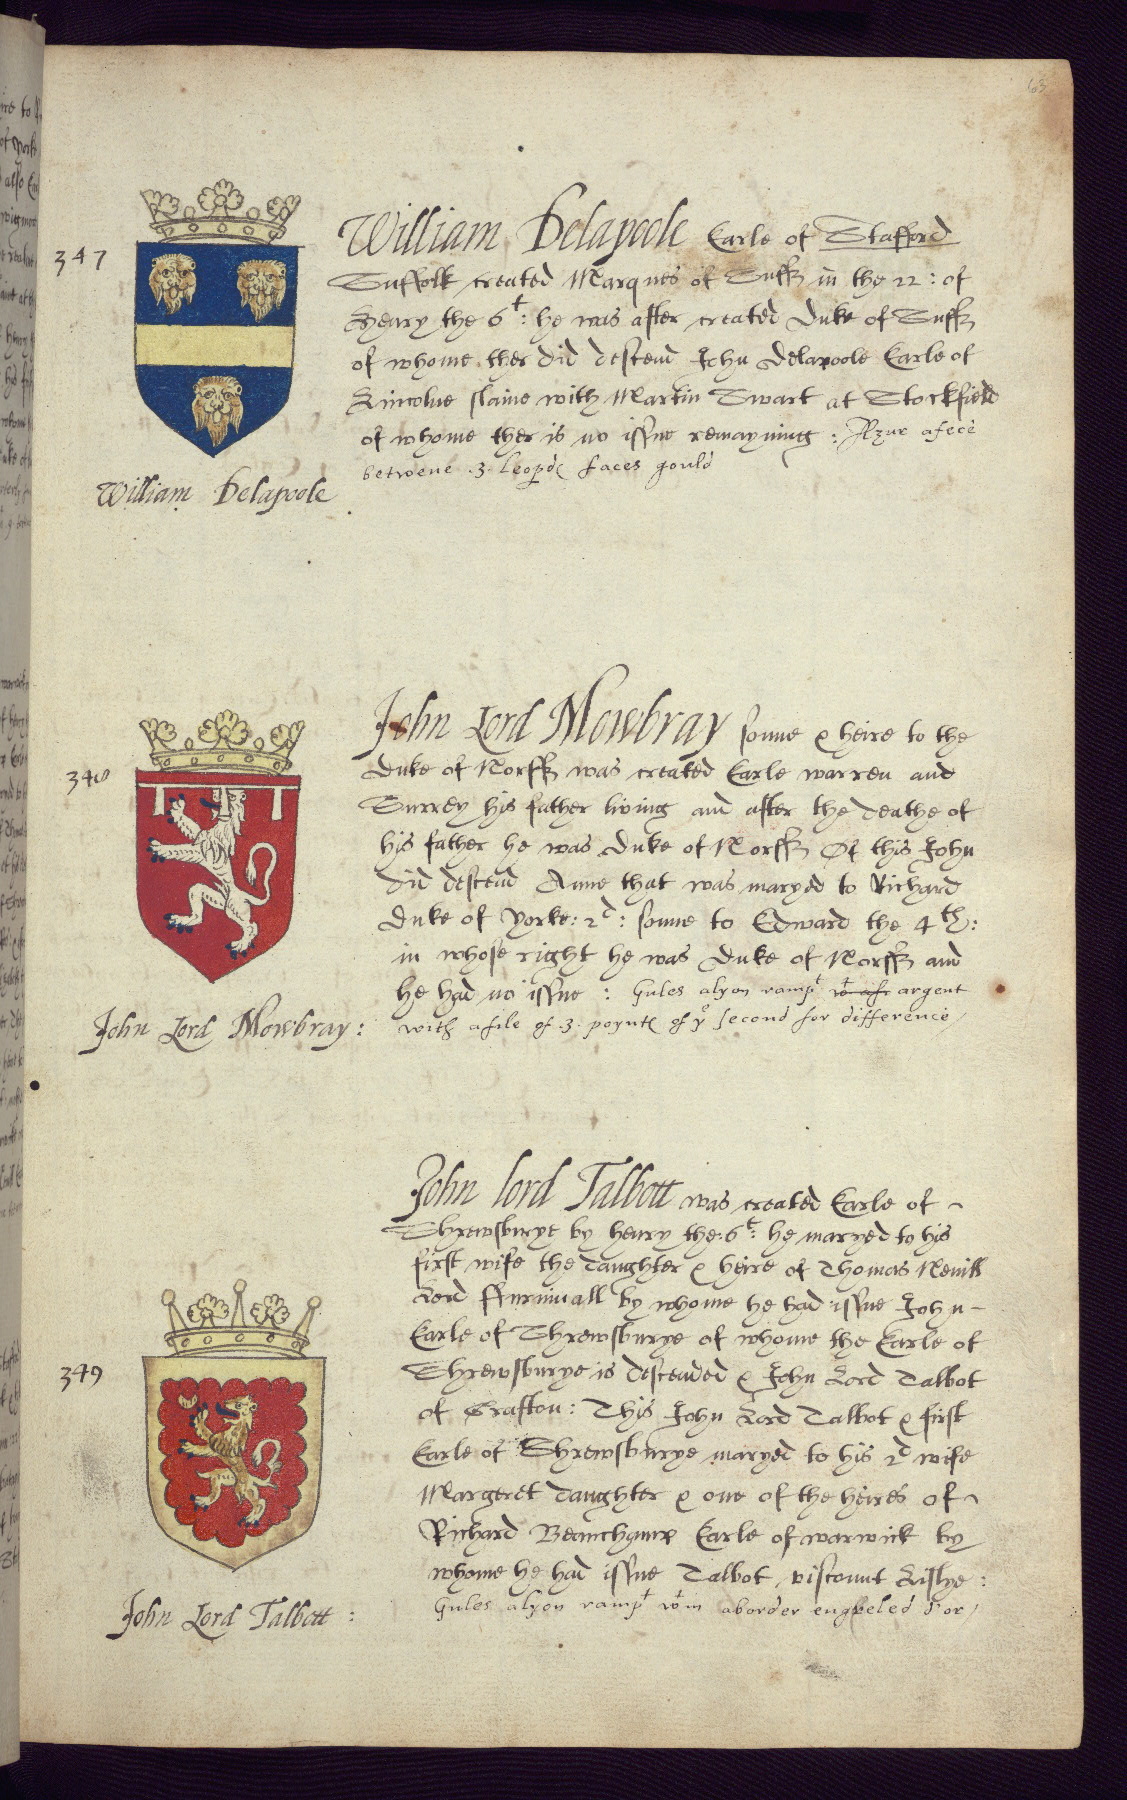 347
William Delapoole Earle of Stafford
Suffolk created Marques of Suff in the 22 : of
Henry the 6t : he was after created Duke of Suff
of whome ther did descend John Delapoole Earle of
Lincolne slaine with Martin Swart at Stockfield
of whome ther is no issue remayning : Azure a fece
betwene .3. leopds faces gould
William Delapoole
348
John Lord Mowbray sonne & heire to the
Duke of Norff was created Earle warren and
Surrey his father living and after the deathe of
his father he was Duke of Norff Of this John
did descend Anne that was maryed to Richard
Duke of Yorke: 2d: sonne to Edward the 4th:
in whose right he was Duke of Norff and
he had no issue : Gules a lyon rampt argent
with a file of .3. poynts of ye second for difference
John Lord Mowbray :
John lord Talbott was created Earle of
Shrewsburye by henry the .6t: he maryed to his
first wife the daughter & heire of Thomas Nevill
Lord ffurnivall by whome he had issue John
Earle of Shrewsburye of whome the Earle of
349
Shrewsburye is descended & John Lord Talbot
of Grafton : This John Lord Talbot & first
Earle of Shrewsburye maryed to his 2d wife
Margeret daughter & one of the heires of
Richard Beauchamp Earle of warwick by
whome he had issue Talbot viscount Lislye :
Gules a lyon rampt wtin a border engreled d'or
John Lord Talbott :